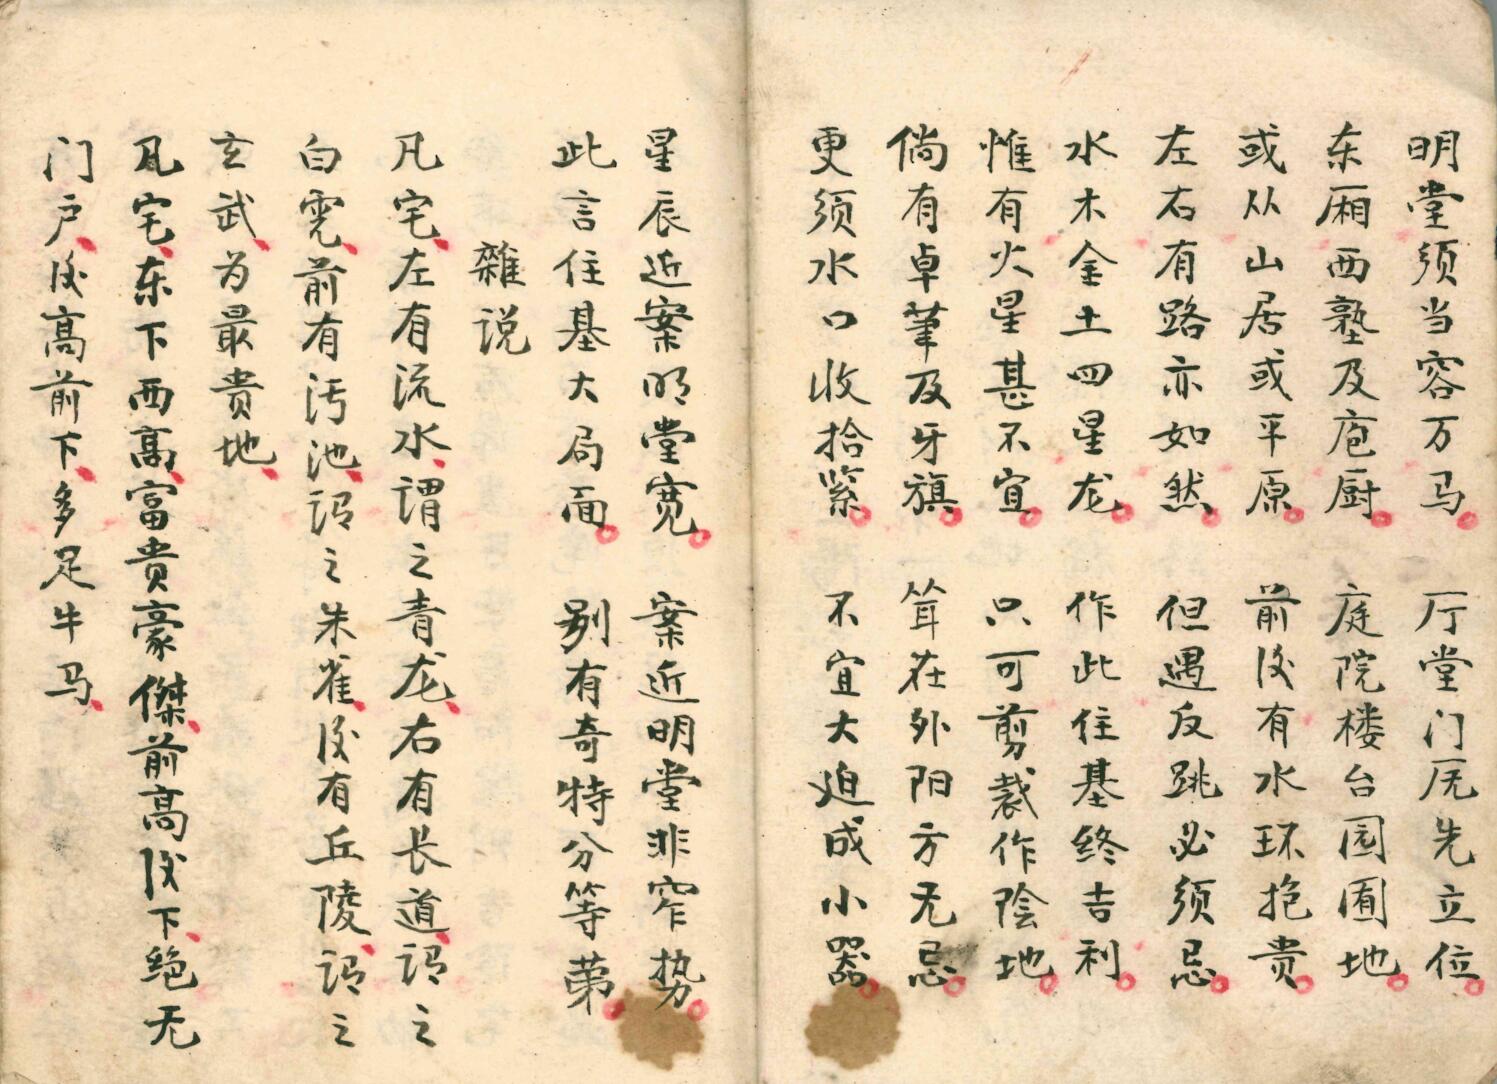 明堂须当容万马。 厅堂门庑先立位。
东厢西塾及庖厨。 庭院楼台园圃地。
或从山居或平原。 前後有水环抱贵。
左右有路亦如然。 但遇反跳必须忌。
水木金土四星龙。 作此住基终吉利。
惟有火星甚不宜。 只可剪裁作陰地。
倘有卓筆及牙旗。 耸在外阳方无忌。
更须水口收拾紧。 不宜大迫成小器。
星辰近案明堂宽。 案近明堂非窄势。
此言住基大局面。 别有奇特分等第。
雜说
凡宅、左有流水、谓之青龙、右有长道、谓之
白虎、前有汚池、谓之朱雀、後有丘陵、谓之
玄武、为最贵地、
凡宅、东下西高、富贵豪傑、前高後下、绝无
门户、後高前下、多足牛马、